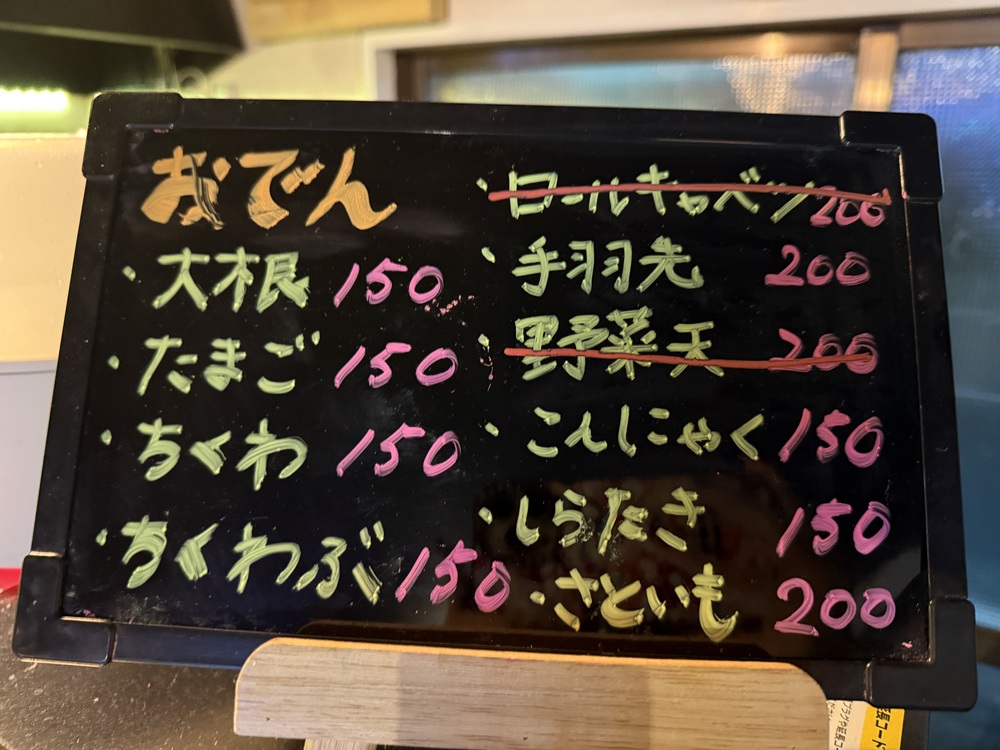 おでん
・大根 150
・たまご 150
・ちくわ 150
・ちくわぶ 150
・ロールキャベツ 200
・手羽先 200
・野菜天 200
・こんにゃく 150
・しらたき 150
・さといも 200